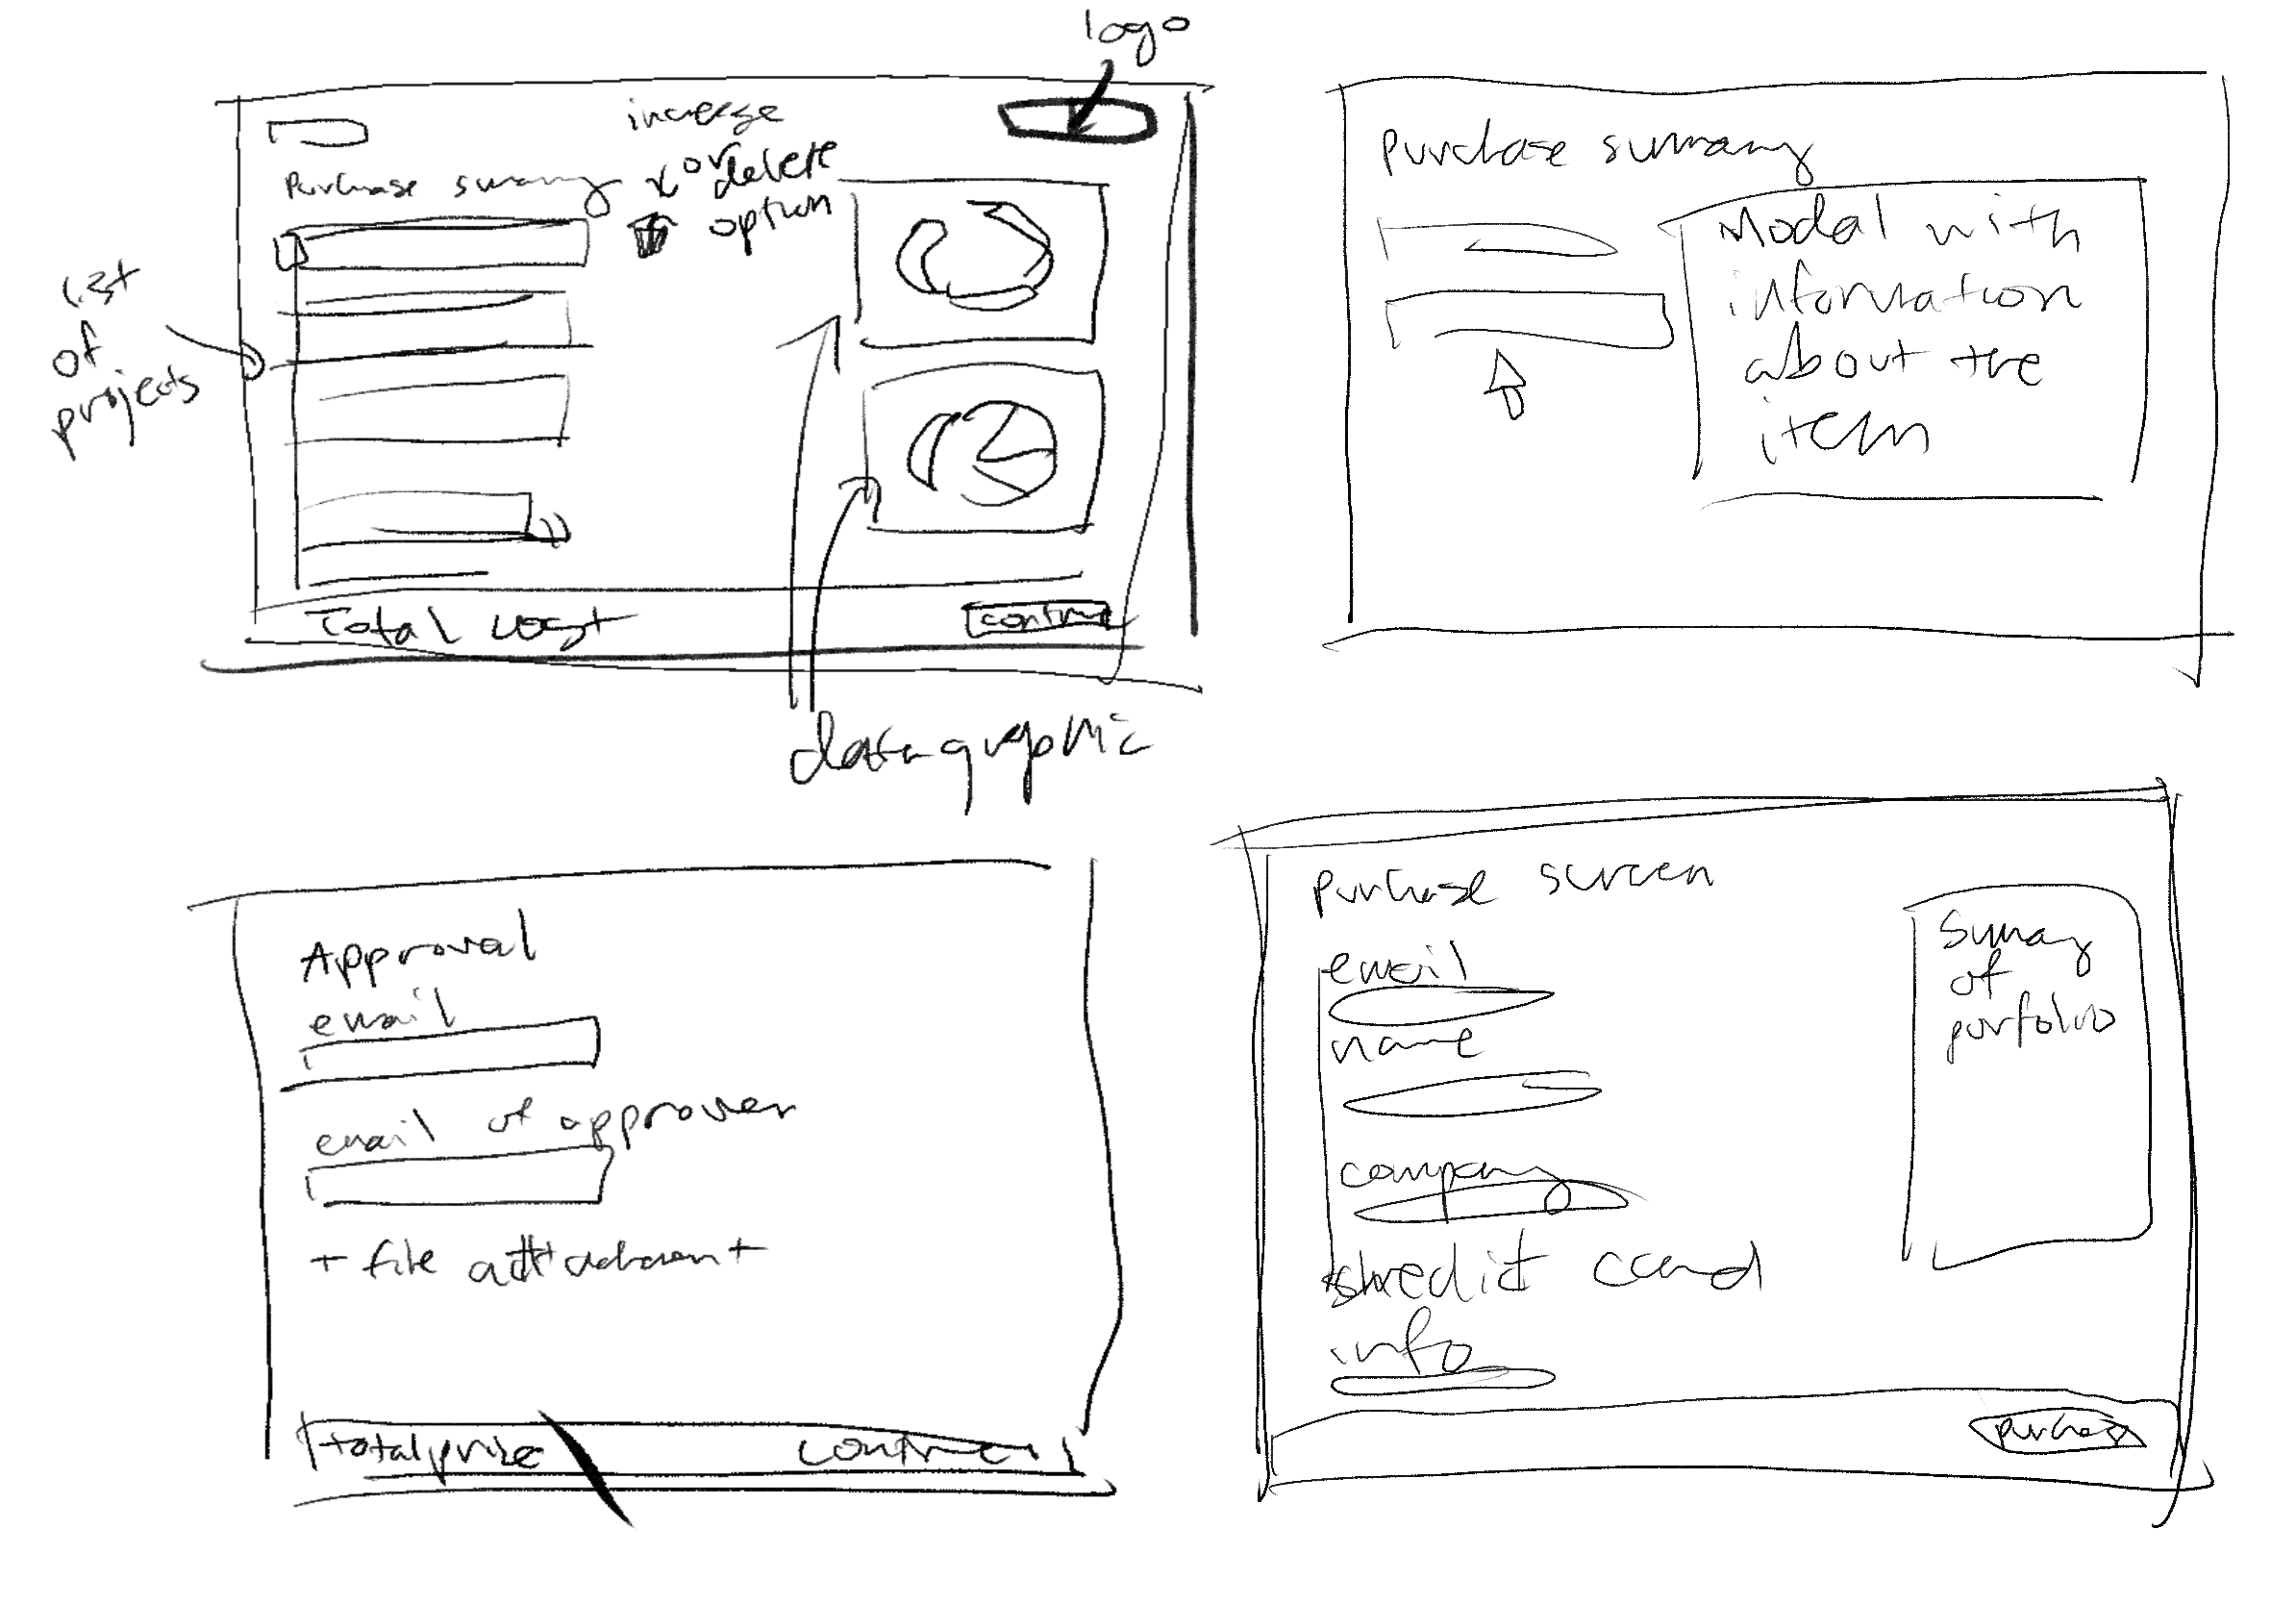 logo
increase
or delete
option
Purchase sumary
list
of
projects
Total cost
continue
datagraphic
purchase summary
Modal with
information
about the
item
Approval
email
email of approver
+ file attachment
total price
continue
purchase screen
email
name
company
credit card
info
Sumary
of
porfolio
purchase